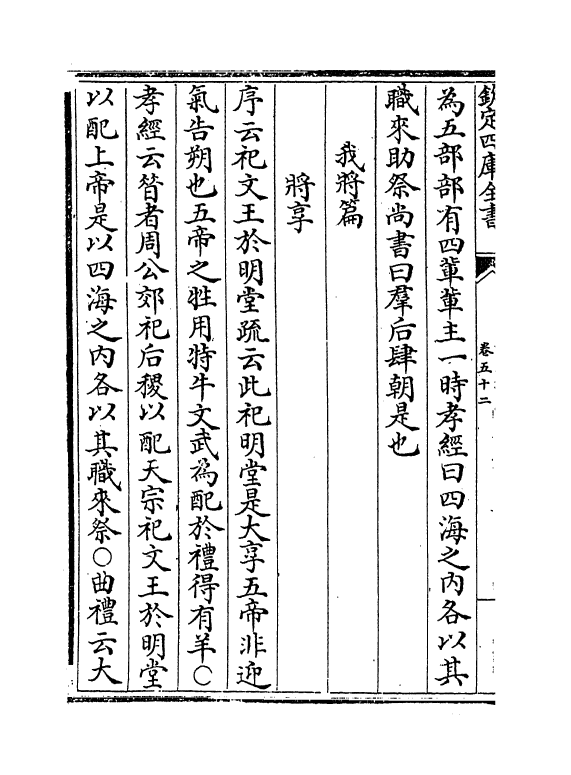 欽定四庫全書
卷五十二
為五部部有四輩輩主一時孝經曰四海之內各以其
職來助祭尚書曰羣后肆朝是也
我將篇
將享
序云祀文王於明堂疏云此祀明堂是大享五帝非迎
氣告朔也五帝之牲用特牛文武為配於禮得有羊〇
孝經云昝者周公郊祀后稷以配天宗祀文王於明堂
以配上帝是以四海之內各以其職來祭〇曲禮云大